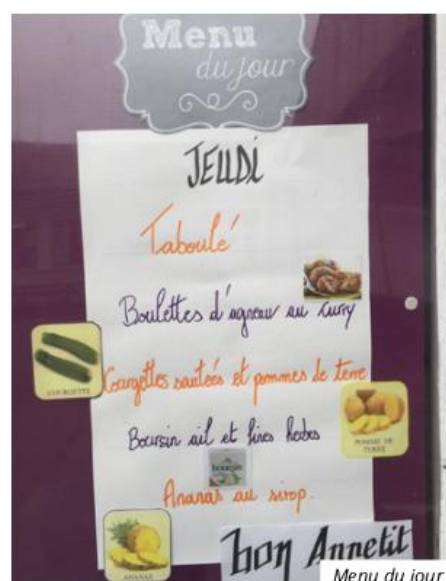 Menu
du jour
JEUDI
Taboulé
Boulettes d'agneau au curry
COURGETTE
Courgettes sautées et pommes de terre
Boursin ail et fines herbes
POMME DE
TERRE
boursin
Ananas au sirop.
ANANAS
bon Appetit
Menu du jour